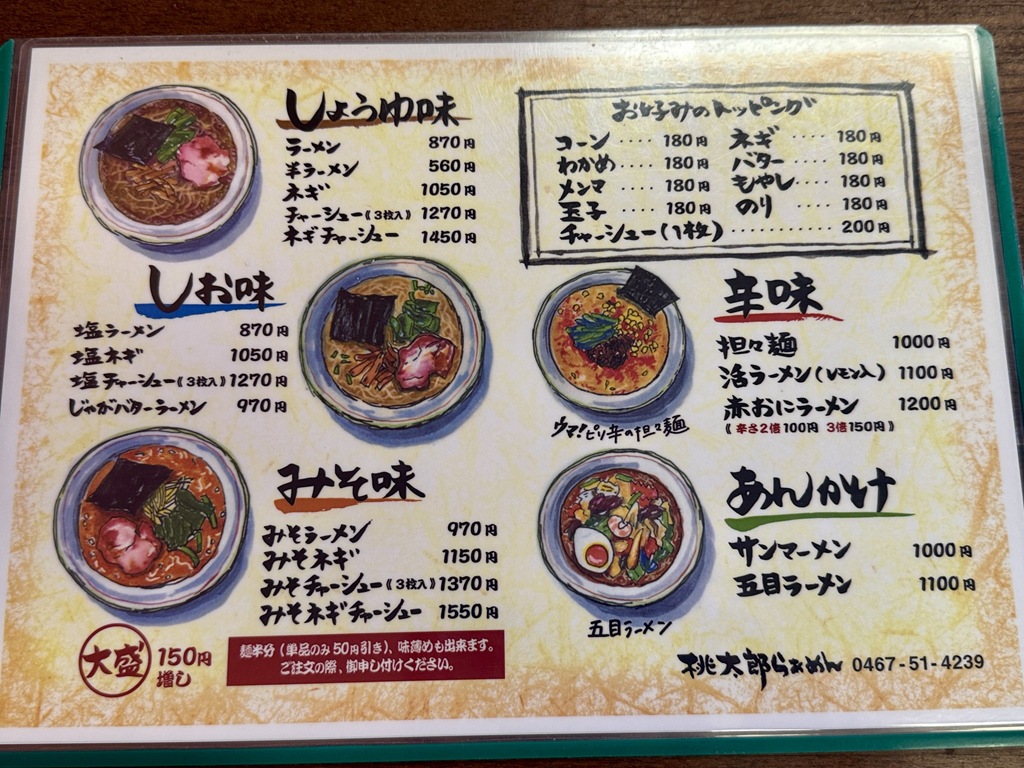 しょうゆ味
ラーメン 870円
半ラーメン 560円
ネギ 1050円
チャーシュー《3枚入》1270円
ネギチャーシュー 1450円
お好みのトッピング
コーン ···· 180円
わかめ ···· 180円
メンマ ···· 180円
玉子 ···· 180円
ネギ ···· 180円
バター ···· 180円
もやし ···· 180円
のり ···· 180円
チャーシュー(1枚) ············ 200円
しお味
塩ラーメン 870円
塩ネギ 1050円
塩チャーシュー《3枚入》1270円
じゃがバターラーメン 970円
辛味
担々麺 1000円
活ラーメン(レモン入) 1100円
赤おにラーメン 1200円
《辛さ2倍100円 3倍150円》
ウマ!ピリ辛の担々麺
みそ味
みそラーメン 970円
みそネギ 1150円
みそチャーシュー《3枚入》1370円
みそネギチャーシュー 1550円
あんかけ
サンマーメン 1000円
五目ラーメン 1100円
五目ラーメン
大盛 150円増し
麺半分(単品のみ50円引き)、味薄めも出来ます。
ご注文の際、御申し付けください。
桃太郎らぁめん 0467-51-4239